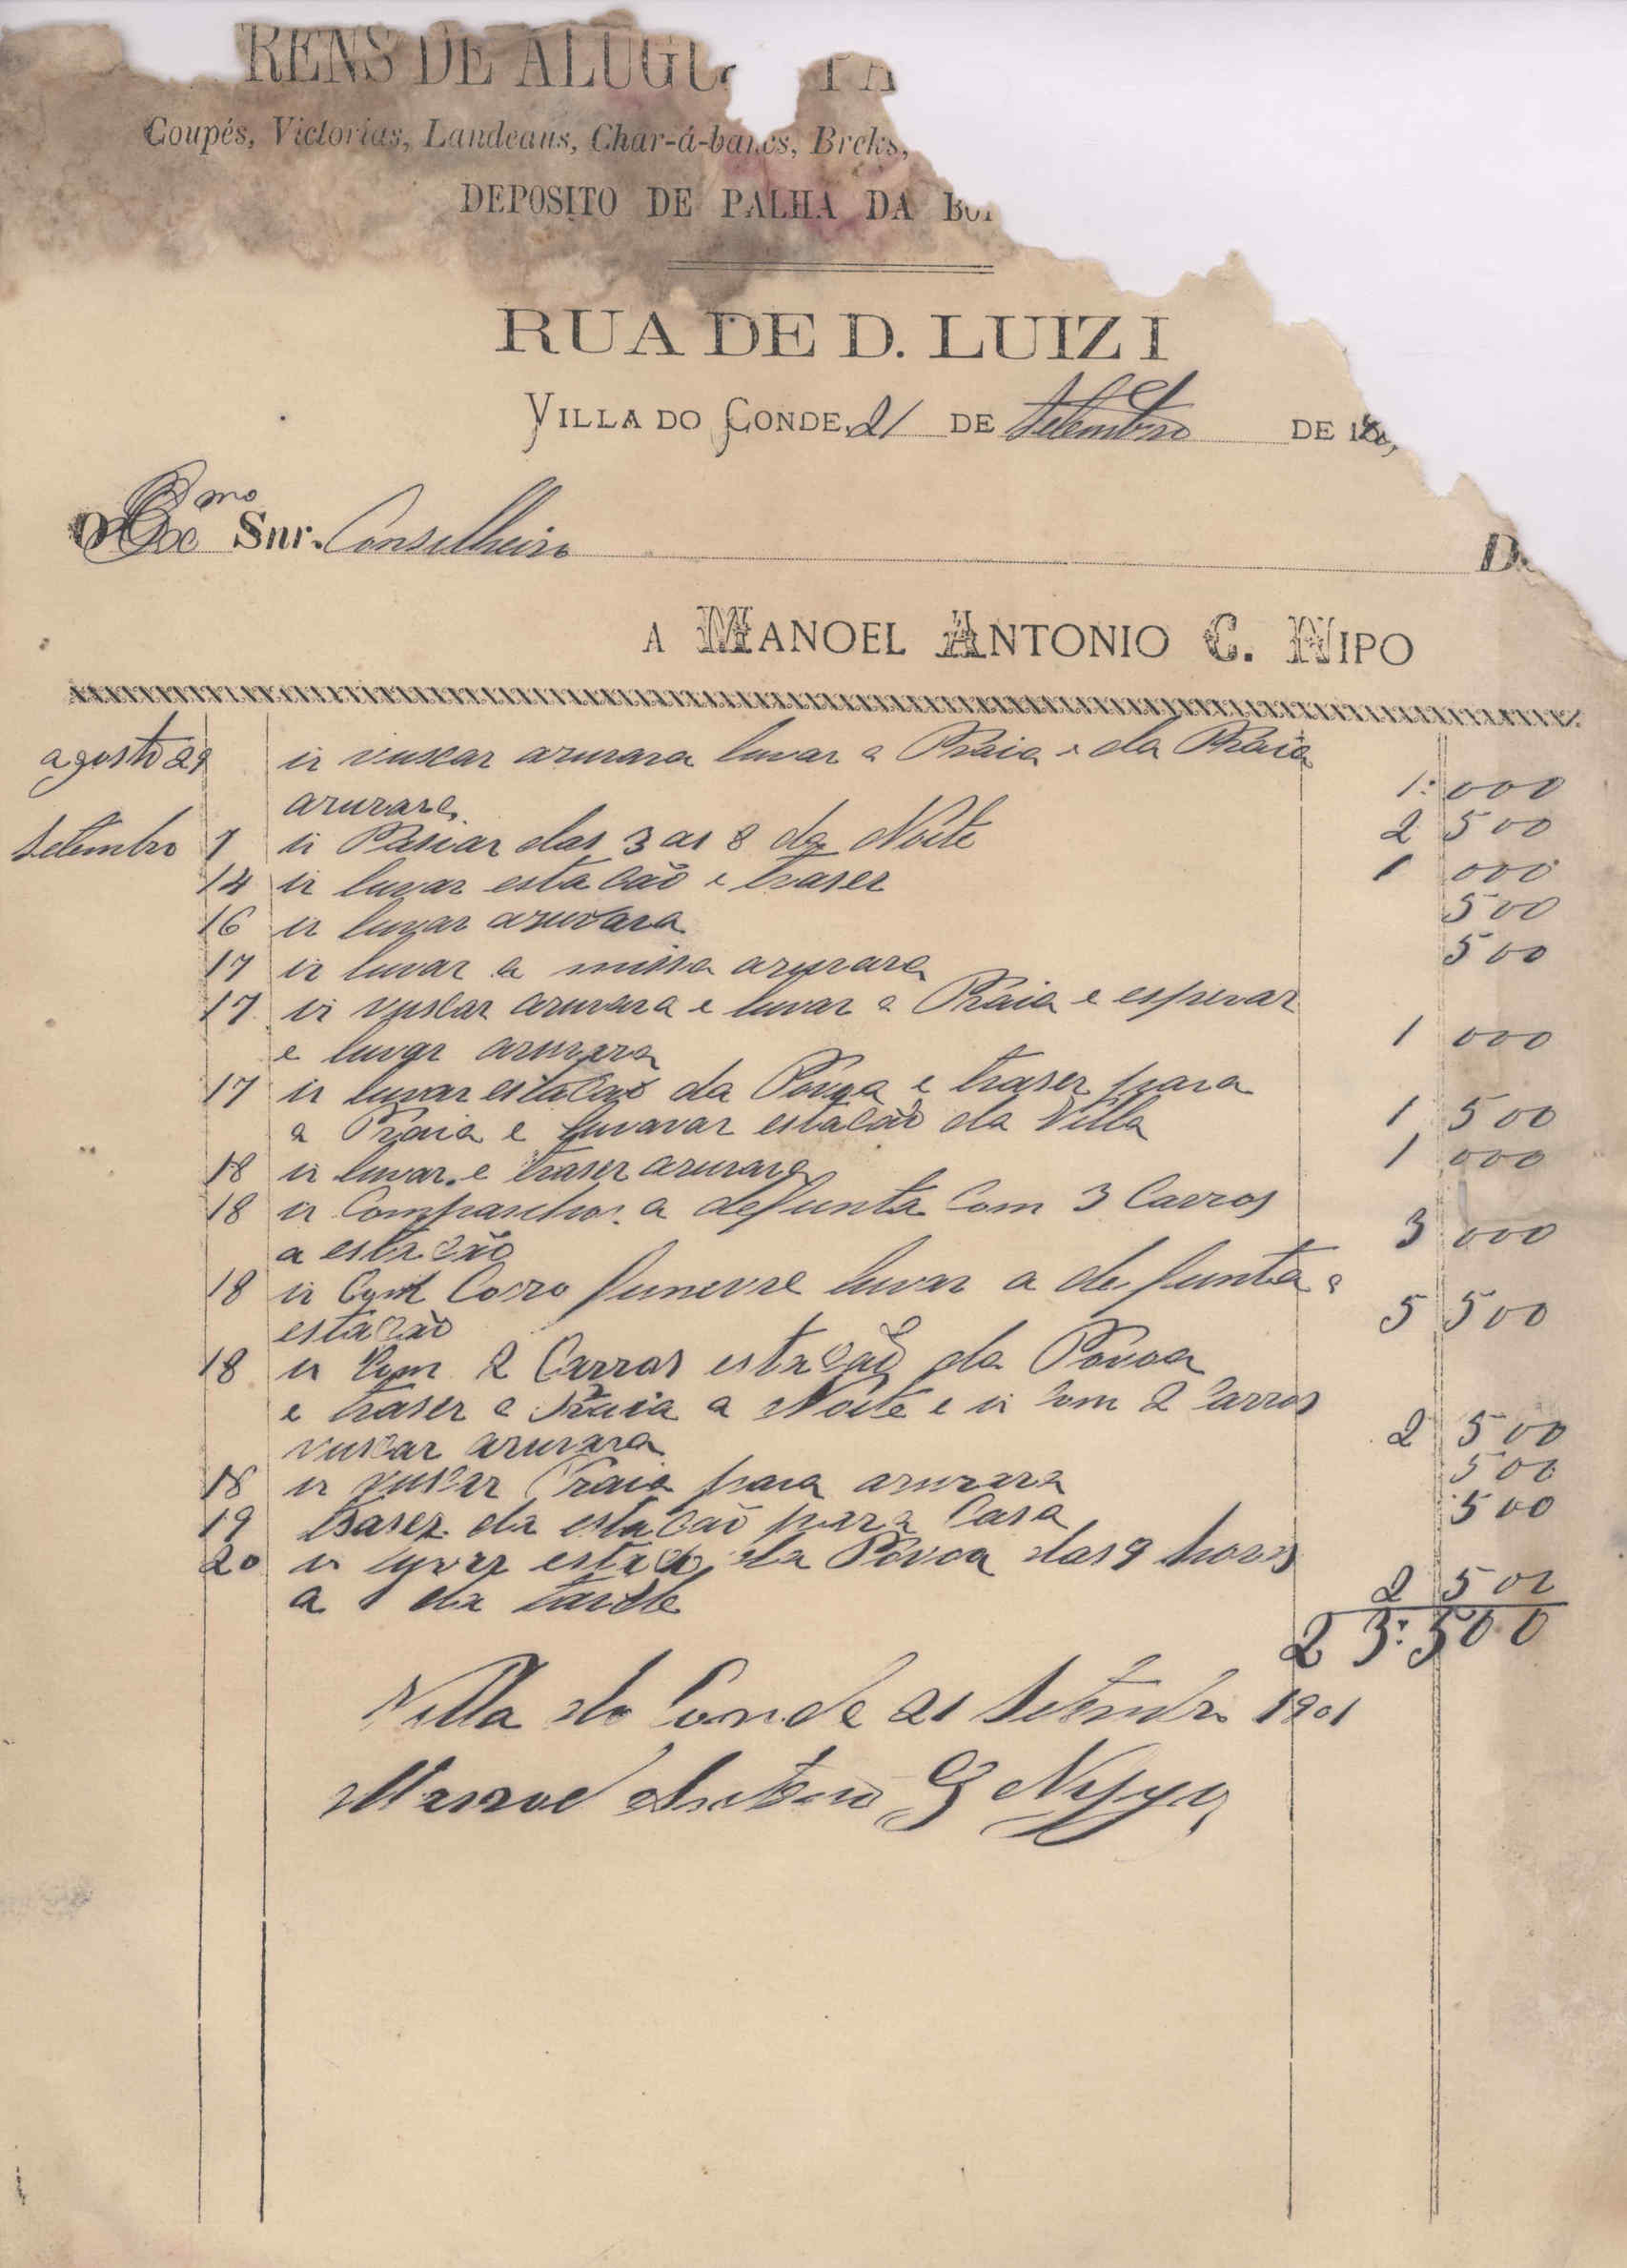 RENS DE ALUGU PA
Coupés, Victorias, Landeaus, Char-á-bancs, Breks,
DEPOSITO DE PALHA DA BOR
RUA DE D. LUIZ I
VILLA DO CONDE, 21 DE Setembro DE 18
O Exmo Snr. Conselheiro D
A MANOEL ANTONIO C. NIPO
agosto 29 ir vuscar azurara luvar a Praia e da Praia
azurara 1:000
Setembro 7 ir Pasiar das 3 as 8 da Noite 2 500
14 ir luvar estacão e traser 1 000
16 ir luvar azurara 500
17 ir luvar a missa azurara 500
17 ir vuscar azurara e luvar a Praia e esperar
e luvar azurara 1 000
17 ir luvar estacão da Povoa e traser para
a Praia e luvavar estacão da Villa 1 500
18 ir luvar e traser azurara 1 000
18 ir a defunta Com 3 Carros
a estacão 3 000
18 ir Com Corro funerre luvar a defunta a
estacão 5 500
18 ir Com 2 Carros estacão da Povoa
e traser a Praia a Noite e ir Com 2 Carros
vuscar azurara 2 500
18 ir vuscar Praia para azurara 500
19 traser da estacão para Casa 500
20 ir luvar da Povoa das 9 horas
a 1 da tarde 2 500
23:500
Villa do Conde 21 Setembro 1901
Manoel Antonio C Nipo